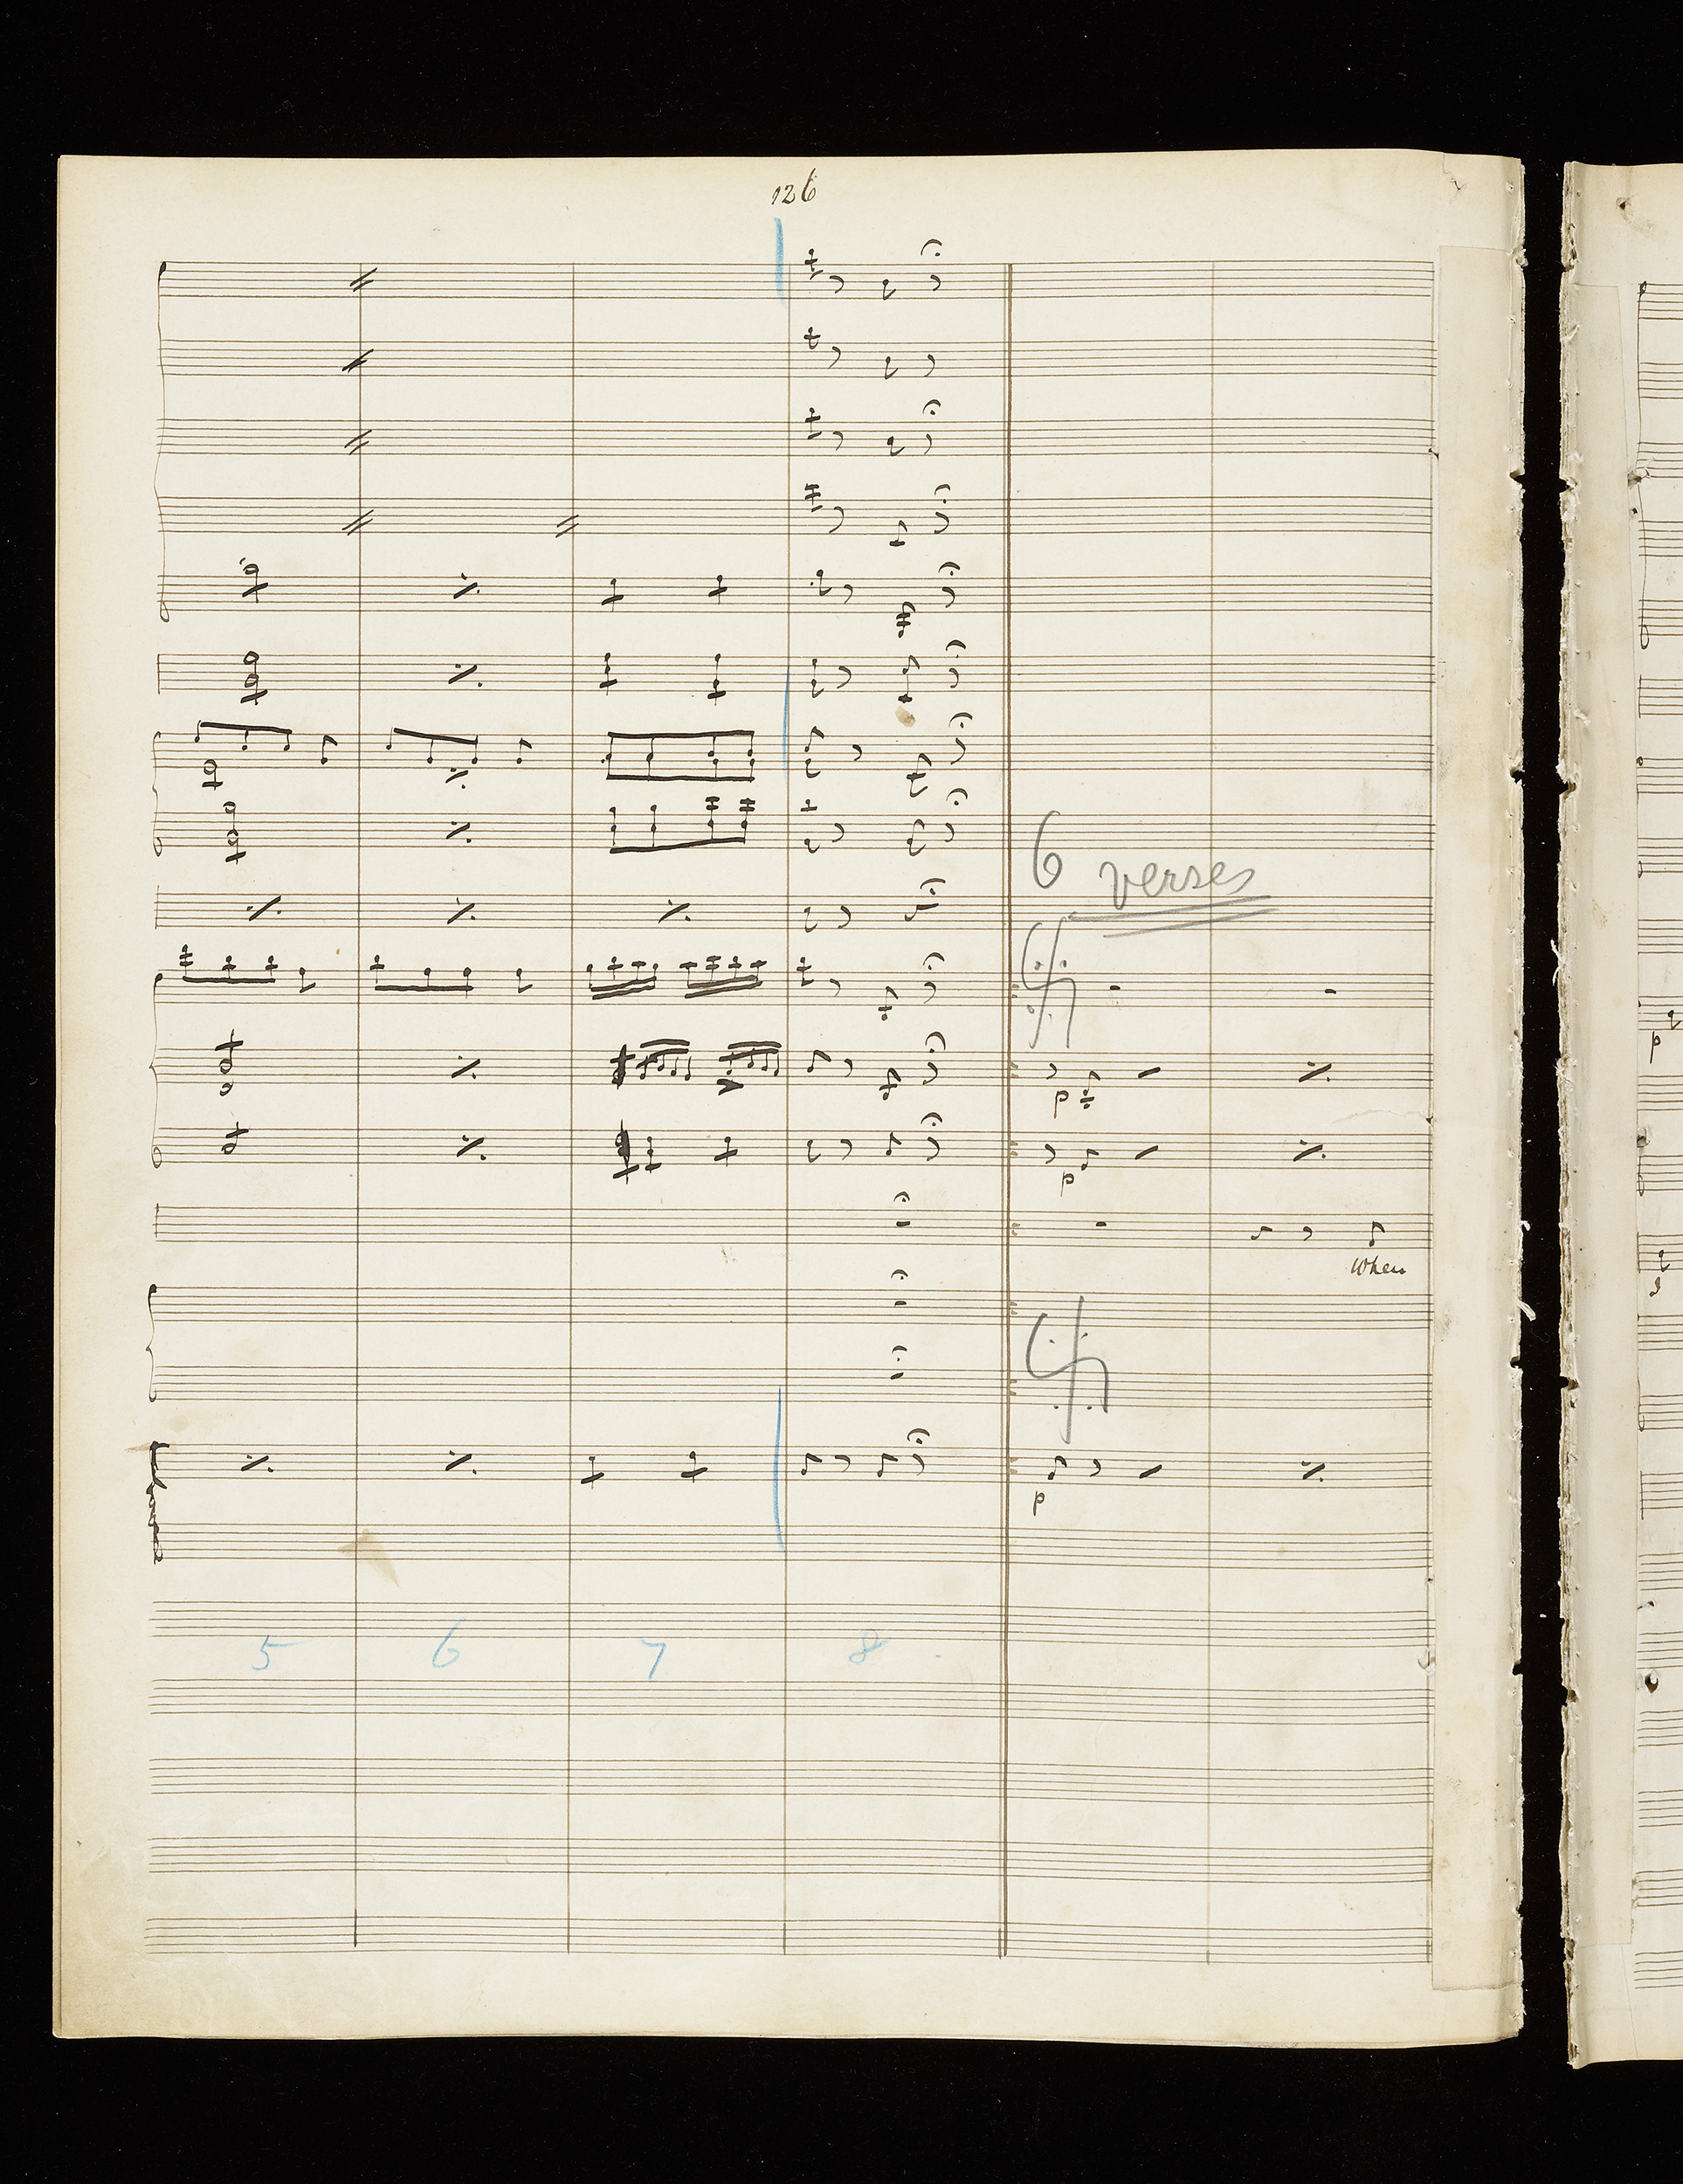 126
6 verses
p
p
When
p
5 6 7 8
p